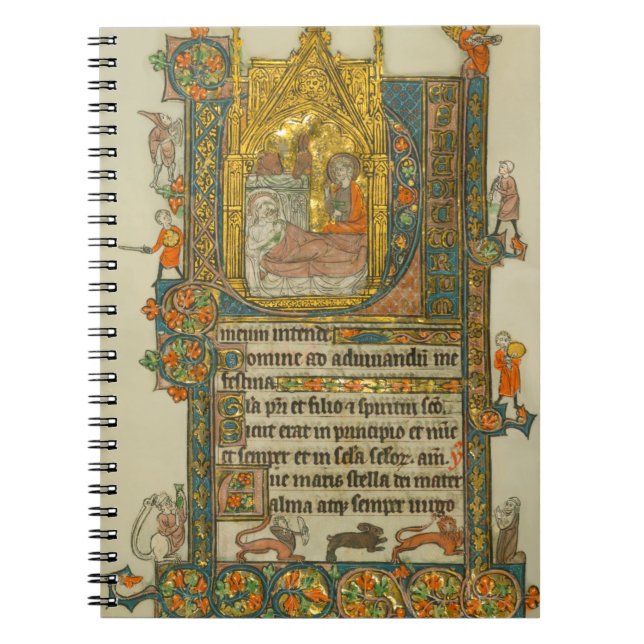 meum intende
Domine ad adiuuandū me
festina
Gl̄a pr̄i et filio ⁊ spiritui sc̄o.
Sicut erat in principio et nūc
et semper et in sc̄la sc̄lor. am̄.
Aue maris stella dei mater
alma atq; semper uirgo